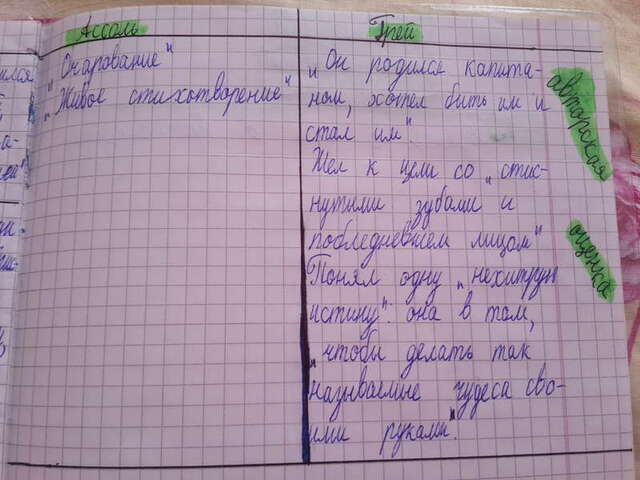 Ассоль
"Очарование"
"Живое стихотворение"
Грей
"Он родился капита-
ном, хотел быть им и
стал им"
Шел к цели со "стис-
нутыми зубами и
побледневшим лицом"
Понял одну "нехитрую
истину": она в том,
"чтобы делать так
называемые чудеса сво-
ими руками".
авторская
оценка